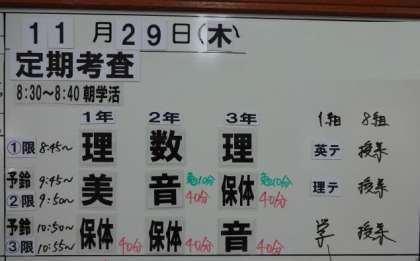 11月29日(木)
定期考査
8:30～8:40 朝学活
1年 2年 3年 1組 8組
①限 8:45～ 理 数 理 英テ 授業
予鈴 9:45～ 美 音 勉10分 保体 勉10分 理テ 授業
2限 9:50～ 40分 40分
予鈴 10:50～ 保体 保体 音 学 授業
3限 10:55～ 40分 40分 40分